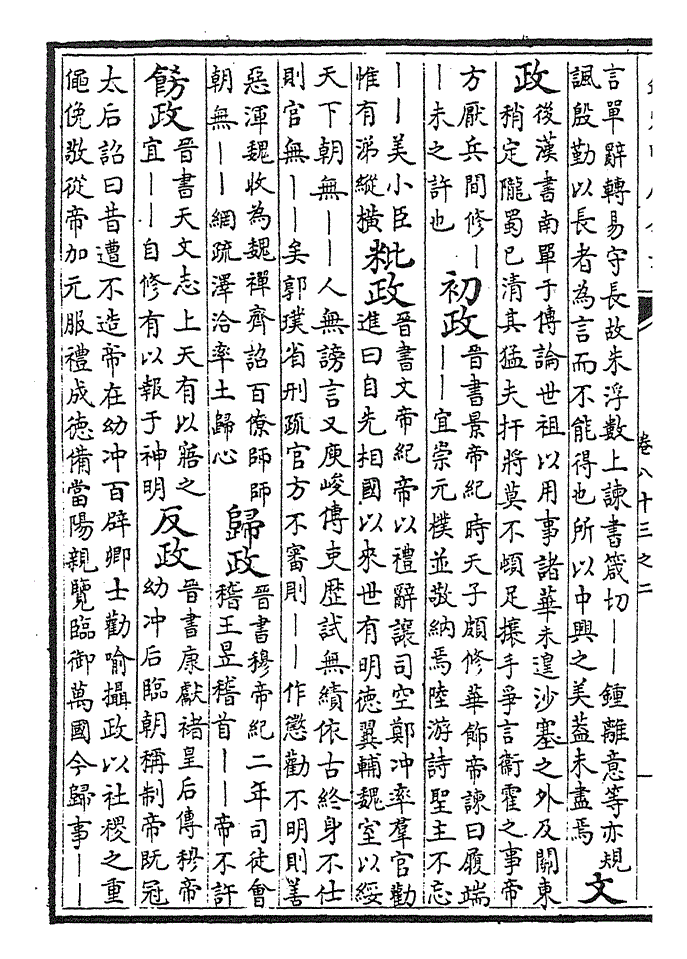 卷八十三之二
言單辭轉易守長故朱浮數上諫書箴切——鍾離意等亦規
諷殷勤以長者為言而不能得也所以中興之美蓋未盡焉
文
政
後漢書南單于傳論世祖以用事諸華未遑沙塞之外及關東
稍定隴蜀已清其猛夫扞將莫不頓足攘手爭言衞霍之事帝
方厭兵間修—
——未之許也
初政
晉書景帝紀時天子頗修華飾帝諫曰履端
——宜崇元樸並敬納焉陸游詩聖主不忘
——美小臣
惟有涕縱横
粃政
晉書文帝紀帝以禮辭讓司空鄭冲率羣官勸
進曰自先相國以來世有明德翼輔魏室以綏
天下朝無——人無謗言又庾峻傳吏歴試無績依古終身不仕
則官無——矣郭璞省刑疏官方不審則——作懲勸不明則善
惡渾魏收為魏禪齊詔百僚師師
朝無——網疏澤洽率土歸心
歸政
晉書穆帝紀二年司徒會
稽王昱稽首——帝不許
飭政
晉書天文志上天有以寤之
宜——自修有以報于神明
反政
晉書康獻褚皇后傳穆帝
幼冲后臨朝稱制帝既冠
太后詔曰昔遭不造帝在幼冲百辟卿士勸喻攝政以社稷之重
僶俛敬從帝加元服禮成德備當陽親覽臨御萬國今歸事——